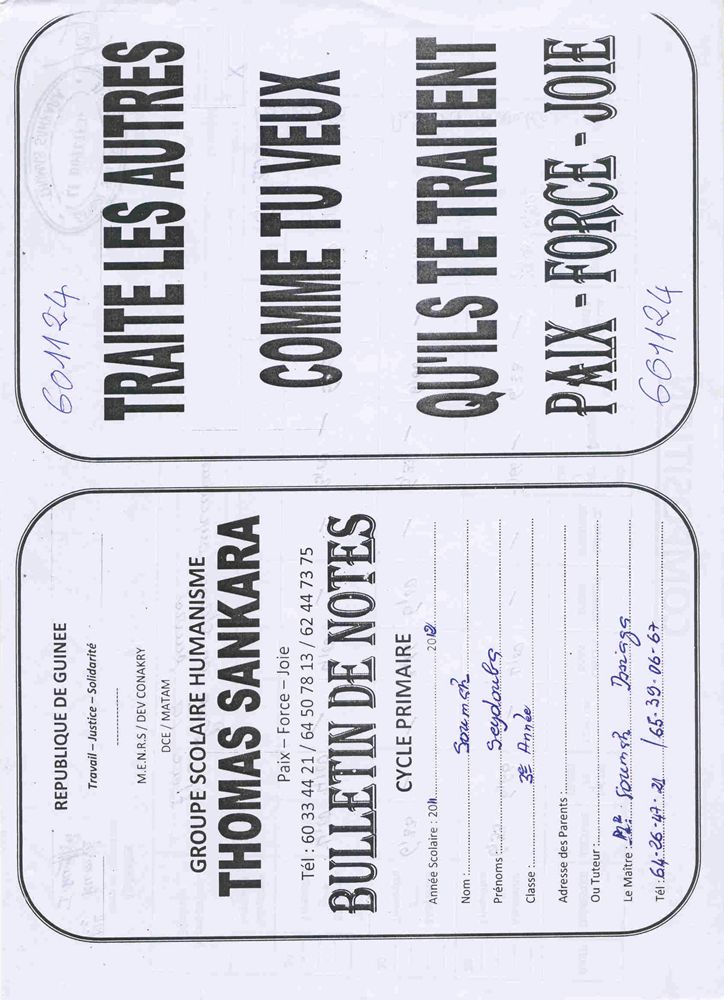 REPUBLIQUE DE GUINEE
Travail – Justice – Solidarité
M.E.N.R.S / DEV CONAKRY
DCE / MATAM
GROUPE SCOLAIRE HUMANISME
THOMAS SANKARA
Paix – Force – Joie
Tél : 60 33 44 21 / 64 50 78 13 / 62 44 73 75
BULLETIN DE NOTES
CYCLE PRIMAIRE
Année Scolaire : 2011 2012
Nom : Soumah
Prénoms : Seydouba
Classe : 3e Année
Adresse des Parents :
Ou Tuteur :
Le Maître : Mr Soumah
Tél : 64-26-47-21 / 65-39-06-67
601124
TRAITE LES AUTRES
COMME TU VEUX
QU'ILS TE TRAITENT
PAIX - FORCE - JOIE
661124